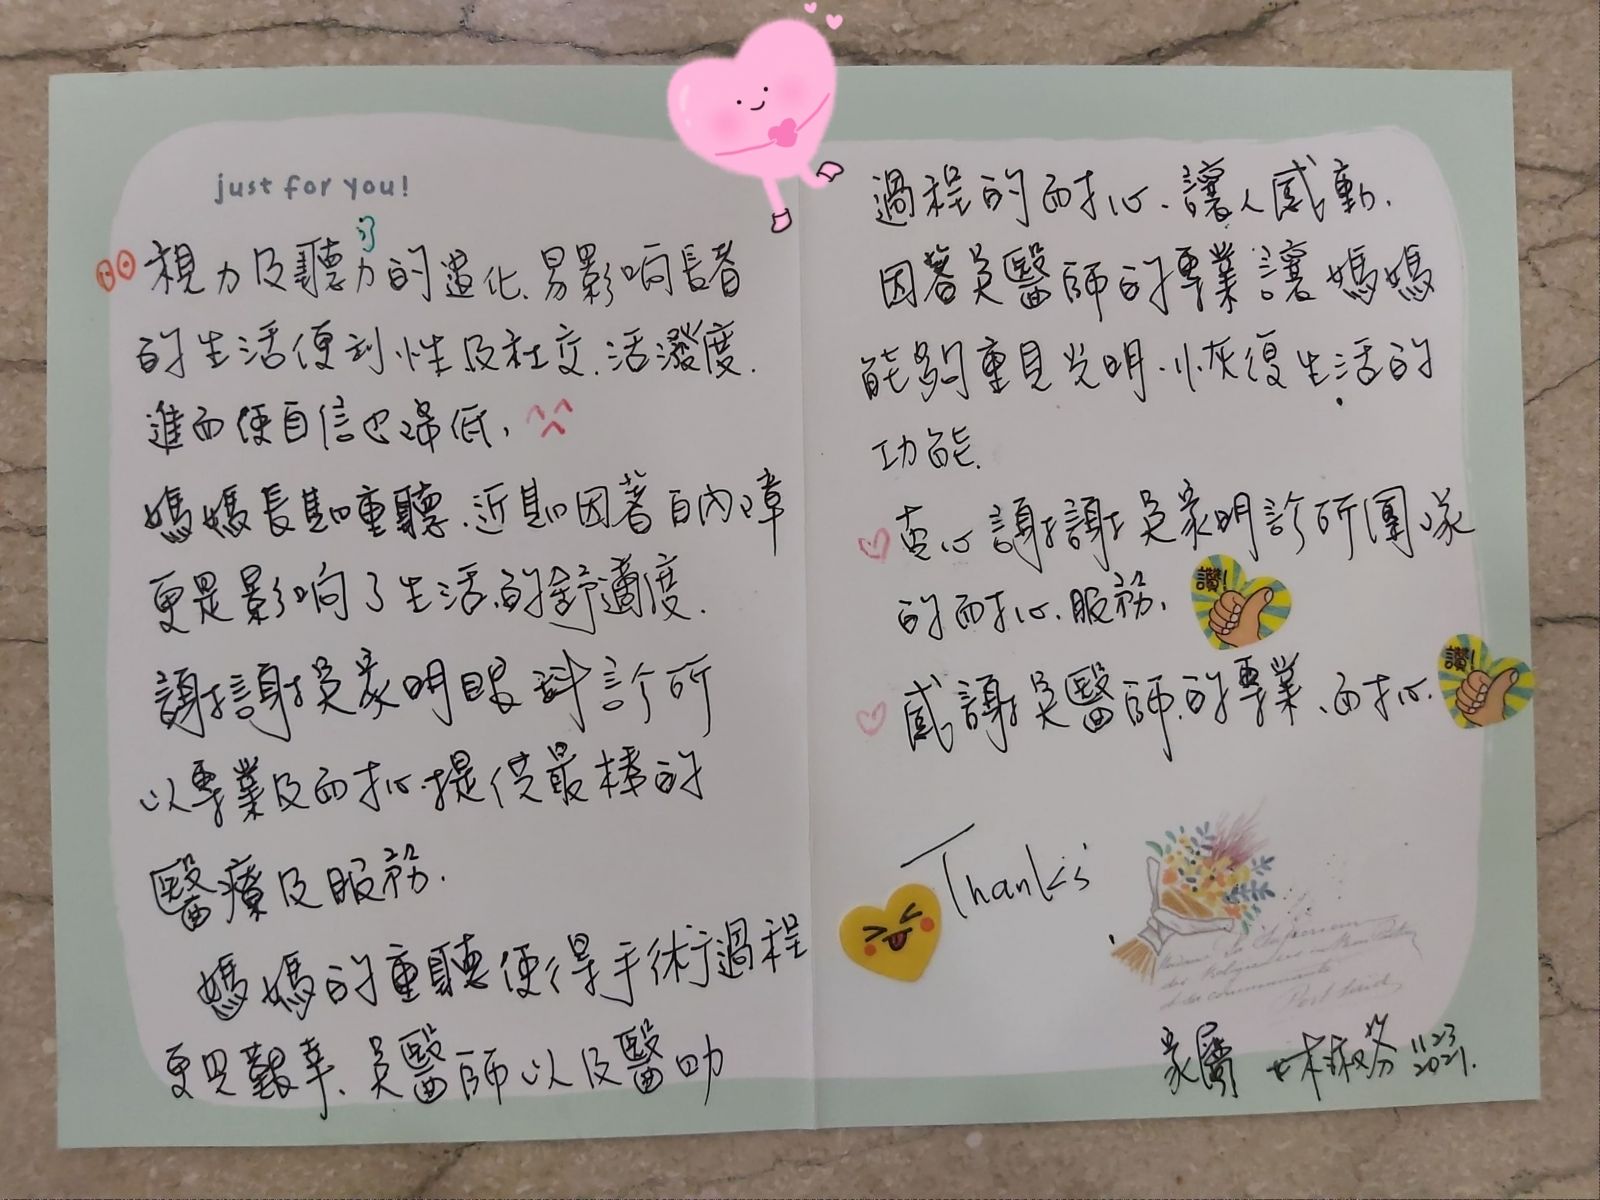 just for you!
視力及聽力的退化、易影响長者
的生活便利性及社交.活潑度.
進而使自信也降低,
媽媽長期重聽.近期因著白內障
更是影响了生活的舒適度.
謝謝吳家明眼科診所
以專業及耐心.提供最棒的
醫療及服務.
媽媽的重聽使得手術過程
更見艱辛、吳醫師以及醫助
過程的耐心.讓人感動.
因著吳醫師的專業讓媽媽
能夠重見光明.恢復生活的
功能.
衷心謝謝吳家明診所團隊
的耐心.服務.
讚!
感謝吳醫師的專業、耐心.
讚!
Thanks
家屬
11.23
2021.